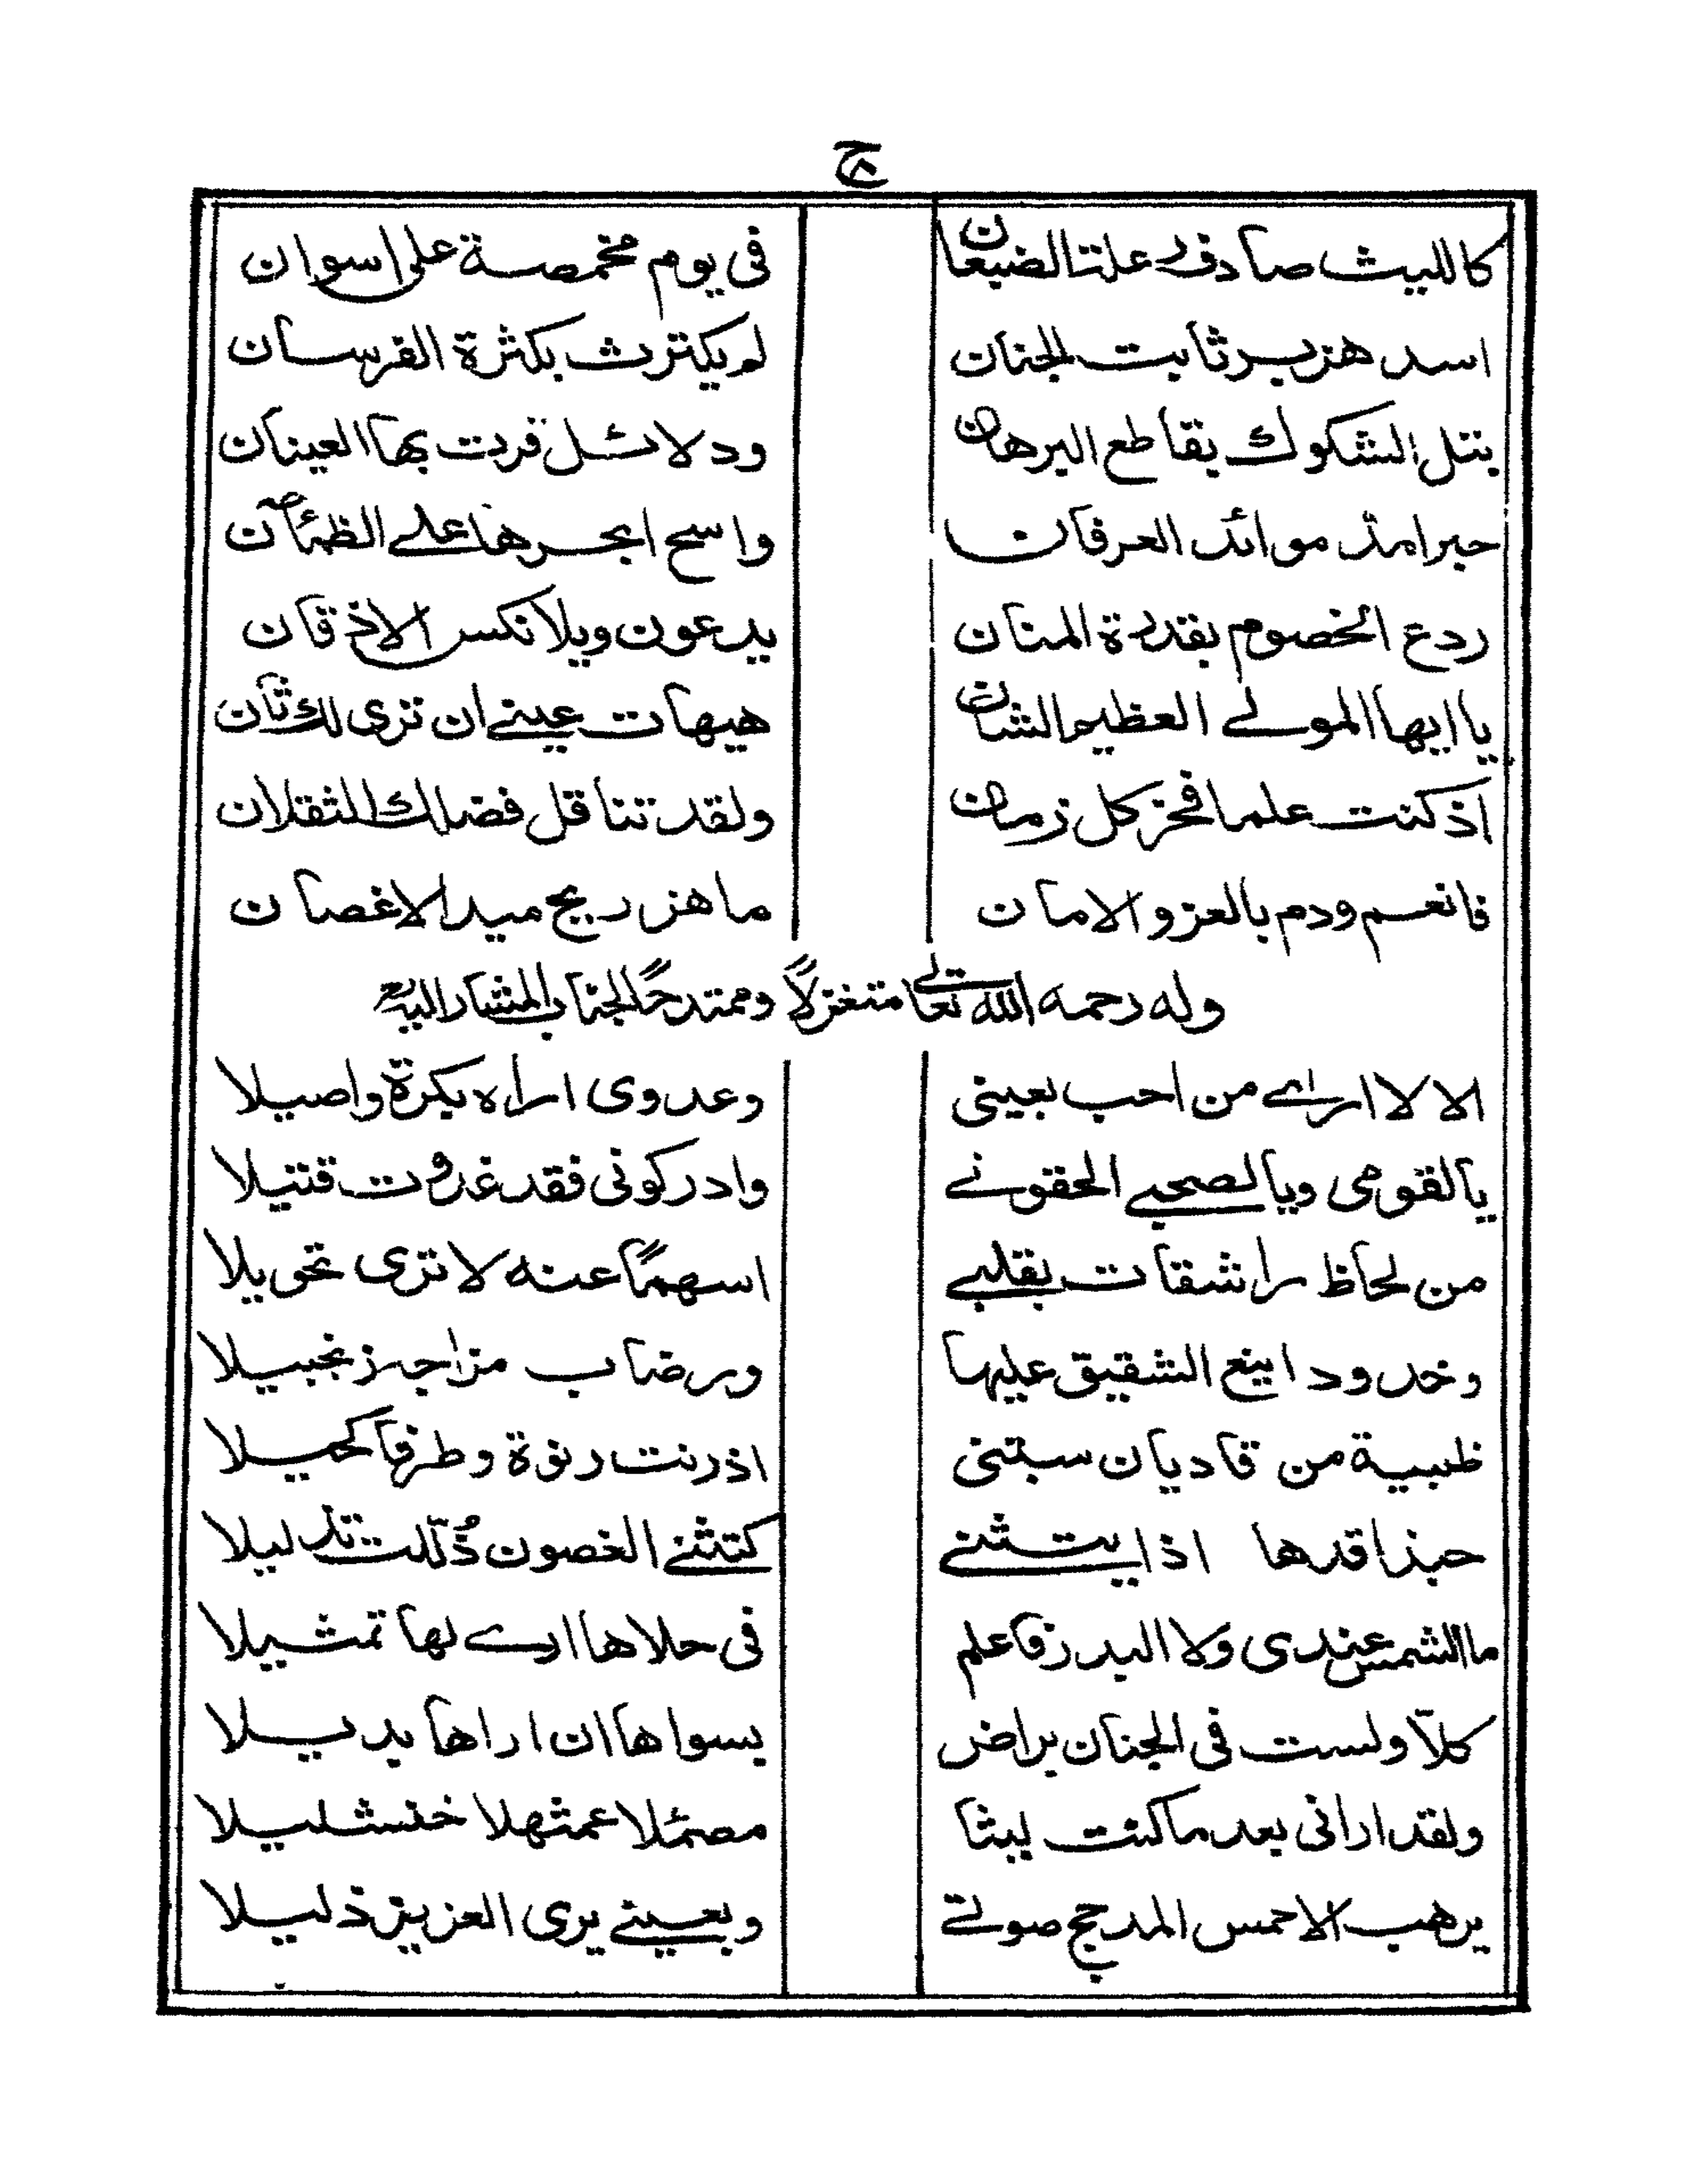 ج
كالليث صادف علتا الضبعان في يوم مخمصة على اسوان
اسد هزبر ثابت الجنان لم يكترث بكثرة الفرسان
بتل الشكوك بقاطع البرهان ودلائل قرت بها العينان
حبر امد موائد العرفان واسح ابحرها على الظمآن
ردع الخصوم بقدرة المنان يدعون ويلا نكس الاذقان
يا ايها المولى العظيم الشان هيهات عيني ان ترى لك ثان
اذ كنت علما فخر كل زمان ولقد تناقل فضلك الثقلان
فانعم ودم بالعز والامان ما هز ريح ميد الاغصان
وله رحمه الله تعالى متغزلاً وممتدحًا الجناب المشار اليه
الا لا ارى من احب بعيني وعدوى اراه بكرة واصيلا
يا لقومى ويا لصحبي الحقوني وادركونى فقد غدوت قتيلا
من لحاظ راشقات بقلبي اسهمًا عنه لا ترى تحويلا
وخدود اينع الشقيق عليها ورضاب مزاجه زنجبيلا
ظبية من قاديان سبتنى اذ رنت رنوة وطرفا كحيلا
حبذا قدها اذا يتثنى كتثني الغصون ذُلّلت تذليلا
ما الشمس عندى ولا البدر فاعلم فى حلاها ارى لها تمثيلا
كلّا ولست فى الجنان براض بسواها ان اراها بديلا
ولقد ارانى بعد ما كنت ليثا مصمئلا عمثهلا خنشليلا
يرهب الاحمس المدجج صولتي وبعيني يرى العزيز ذليلا